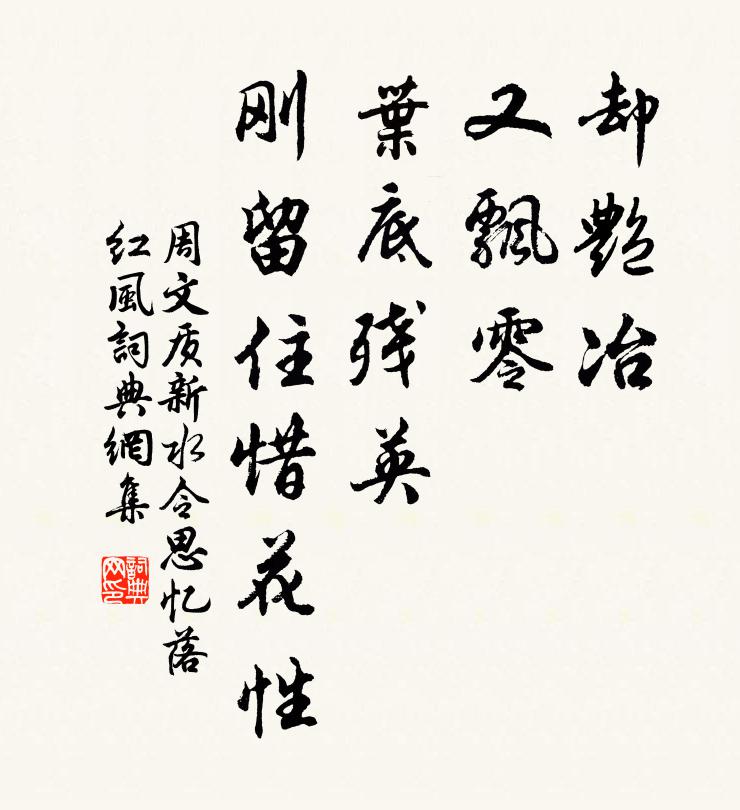 却艷冶
又飄零
葉底残英
刚留住惜花性
周文质新水令思忆落
红風詞典網集
詞典
网印